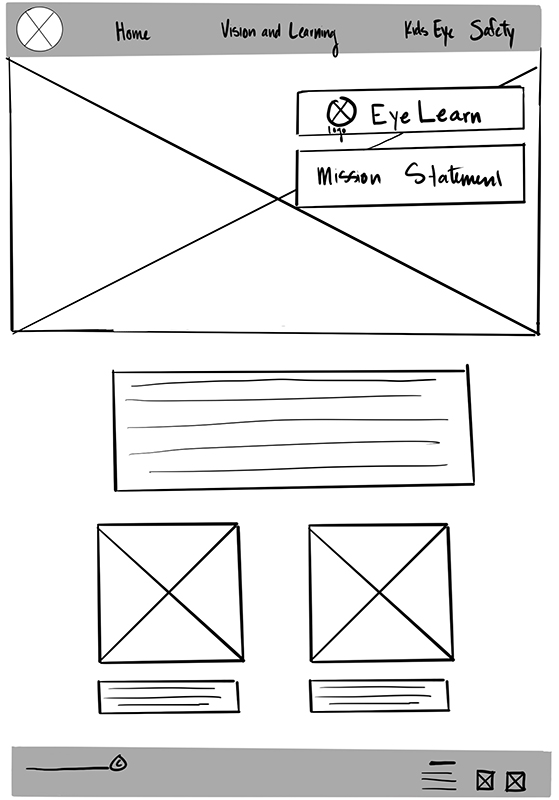 Home Vision and Learning Kids Eye Safety
Eye Learn
logo
Mission Statement
©